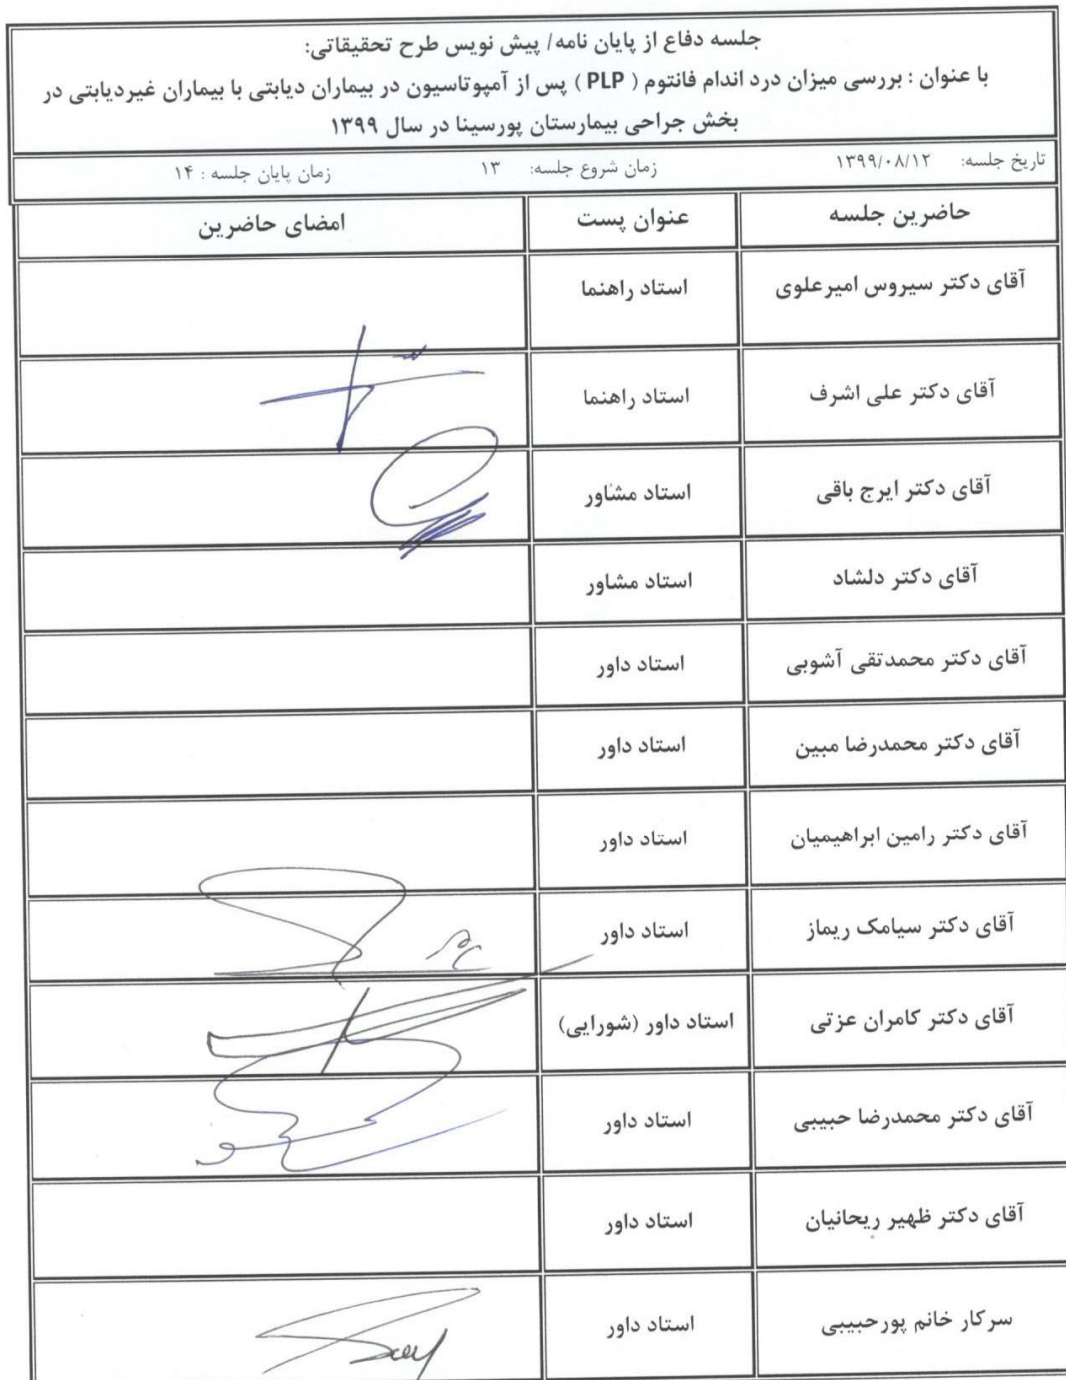 جلسه دفاع از پایان نامه/ پیش نویس طرح تحقیقاتی:
با عنوان : بررسی میزان درد اندام فانتوم ( PLP ) پس از آمپوتاسیون در بیماران دیابتی با بیماران غیردیابتی در
بخش جراحی بیمارستان پورسینا در سال ۱۳۹۹
تاریخ جلسه: ۱۳۹۹/۰۸/۱۲ زمان شروع جلسه: ۱۳ زمان پایان جلسه : ۱۴
حاضرین جلسه عنوان پست امضای حاضرین
آقای دکتر سیروس امیرعلوی استاد راهنما
آقای دکتر علی اشرف استاد راهنما
آقای دکتر ایرج باقی استاد مشاور
آقای دکتر دلشاد استاد مشاور
آقای دکتر محمدتقی آشوبی استاد داور
آقای دکتر محمدرضا مبین استاد داور
آقای دکتر رامین ابراهیمیان استاد داور
آقای دکتر سیامک ریماز استاد داور
آقای دکتر کامران عزتی استاد داور (شورایی)
آقای دکتر محمدرضا حبیبی استاد داور
آقای دکتر ظهیر ریحانیان استاد داور
سرکار خانم پورحبیبی استاد داور